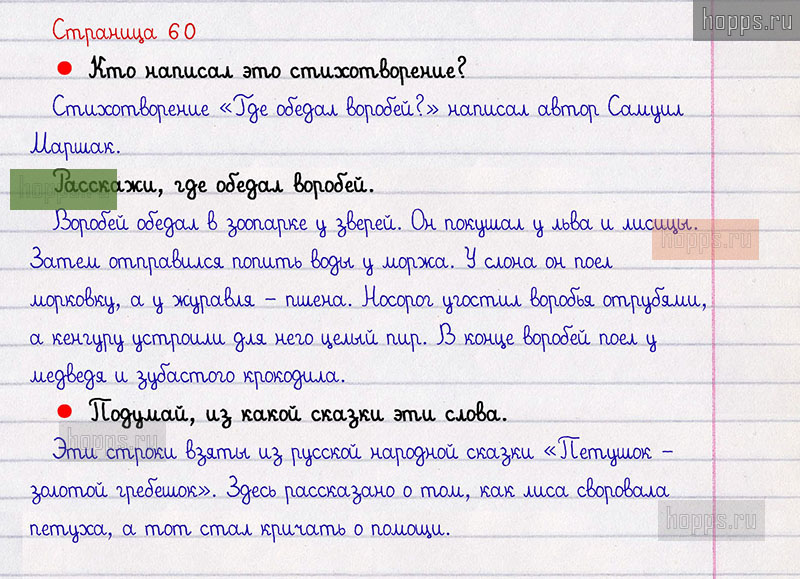 hopps.ru
Страница 60
Кто написал это стихотворение?
Стихотворение «Где обедал воробей?» написал автор Самуил
Маршак.
hopps.ru
Расскажи, где обедал воробей.
Воробей обедал в зоопарке у зверей. Он покушал у льва и лисицы.
hopps.ru
Затем отправился попить воды у моржа. У слона он поел
морковку, а у журавля – пшена. Носорог угостил воробья отрубями,
а кенгуру устроили для него целый пир. В конце воробей поел у
медведя и зубастого крокодила.
Подумай, из какой сказки эти слова.
hopps.ru
Эти строки взяты из русской народной сказки «Петушок –
золотой гребешок». Здесь рассказано о том, как лиса своровала
петуха, а тот стал кричать о помощи.
hopps.ru